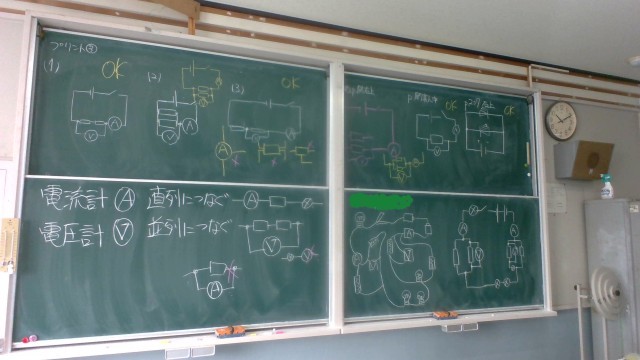 プリント②
(1)
OK
(2)
(3)
OK
OK
OK
電流計 Ⓐ 直列につなぐ
電圧計 Ⓥ 並列につなぐ